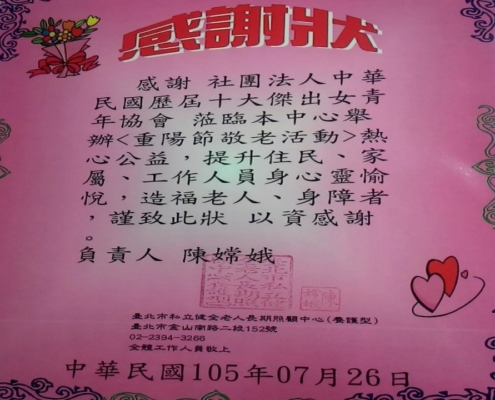 感謝狀
感謝 社團法人中華
民國歷屆十大傑出女青
年協會 蒞臨本中心舉
辦<重陽節敬老活動>熱
心公益，提升住民、家
屬、工作人員身心靈愉
悅，造福老人、身障者
，謹致此狀 以資感謝
。
負責人 陳嫦娥
臺北市私立健全老人長期照顧中心(養護型)
臺北市金山南路二段152號
02-2394-3266
全體工作人員敬上
中華民國105年07月26日